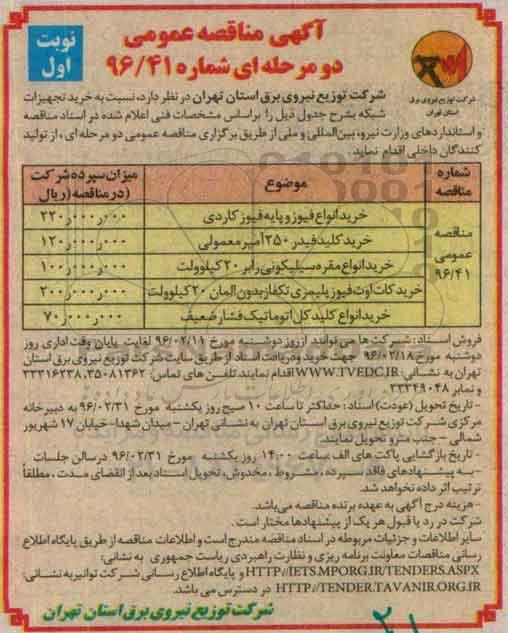 آگهی مناقصه عمومی
دو مرحله ای شماره ۹۶/۴۱
نوبت
اول
شرکت توزیع نیروی برق
استان تهران
شرکت توزیع نیروی برق استان تهران در نظر دارد، نسبت به خرید تجهیزات
شبکه بشرح جدول ذیل را براساس مشخصات فنی اعلام شده در اسناد مناقصه
و استانداردهای وزارت نیرو، بین‌المللی و ملی از طریق برگزاری مناقصه عمومی دو مرحله ای، از تولید
کنندگان داخلی اقدام نماید.
شماره مناقصه
موضوع
میزان سپرده شرکت در مناقصه (ریال)
مناقصه عمومی ۹۶/۴۱
خرید انواع فیوز و پایه فیوز کاردی ۲۲۰٫۰۰۰٫۰۰۰
خرید کلید فیدر ۲۵۰ آمپر معمولی ۱۲۰٫۰۰۰٫۰۰۰
خرید انواع مقره سیلیکونی رابر ۲۰ کیلوولت ۱۰۰٫۰۰۰٫۰۰۰
خرید کات اوت فیوز پلیمری تکفاز بدون المان ۲۰ کیلوولت ۲۰۰٫۰۰۰٫۰۰۰
خرید انواع کلید کل اتوماتیک فشار ضعیف ۷۰٫۰۰۰٫۰۰۰
فروش اسناد: شرکت ها می توانند از روز دوشنبه مورخ ۹۶/۰۲/۱۱ لغایت پایان وقت اداری روز
دوشنبه مورخ ۹۶/۰۲/۱۸ جهت خرید و دریافت اسناد از طریق سایت شرکت توزیع نیروی برق استان
تهران به نشانی: WWW.TVEDC.IR اقدام نمایند تلفن های تماس: ۳۵۰۸۱۳۶۲، ۳۳۳۱۶۲۳۸
و نمابر ۳۳۳۴۹۰۴۸
- تاریخ تحویل (عودت) اسناد: حداکثر تا ساعت ۱۰ صبح روز یکشنبه مورخ ۹۶/۰۲/۳۱ به دبیرخانه
مرکزی شرکت توزیع نیروی برق استان تهران به نشانی تهران - میدان شهدا - خیابان ۱۷ شهریور
شمالی - جنب مترو تحویل نمایند.
- تاریخ بازگشایی پاکت های الف ساعت ۱۴:۰۰ روز یکشنبه مورخ ۹۶/۰۲/۳۱ در سالن جلسات
- به پیشنهادهای فاقد سپرده، مشروط، مخدوش، تحویل اسناد بعد از انقضای مدت، مطلقاً
ترتیب اثر داده نخواهد شد.
- هزینه درج آگهی به عهده برنده مناقصه می باشد.
شرکت در رد یا قبول هر یک از پیشنهادها مختار است.
سایر اطلاعات و جزئیات مربوطه در اسناد مناقصه مندرج است و اطلاعات مناقصه از طریق پایگاه اطلاع
رسانی مناقصات معاونت برنامه ریزی و نظارت راهبردی ریاست جمهوری به نشانی:
HTTP://IETS.MPORG.IR/TENDERS.ASPX و پایگاه اطلاع رسانی شرکت توانیر به نشانی:
HTTP://TENDER.TAVANIR.ORG.IR در دسترس می باشد.
شرکت توزیع نیروی برق استان تهران